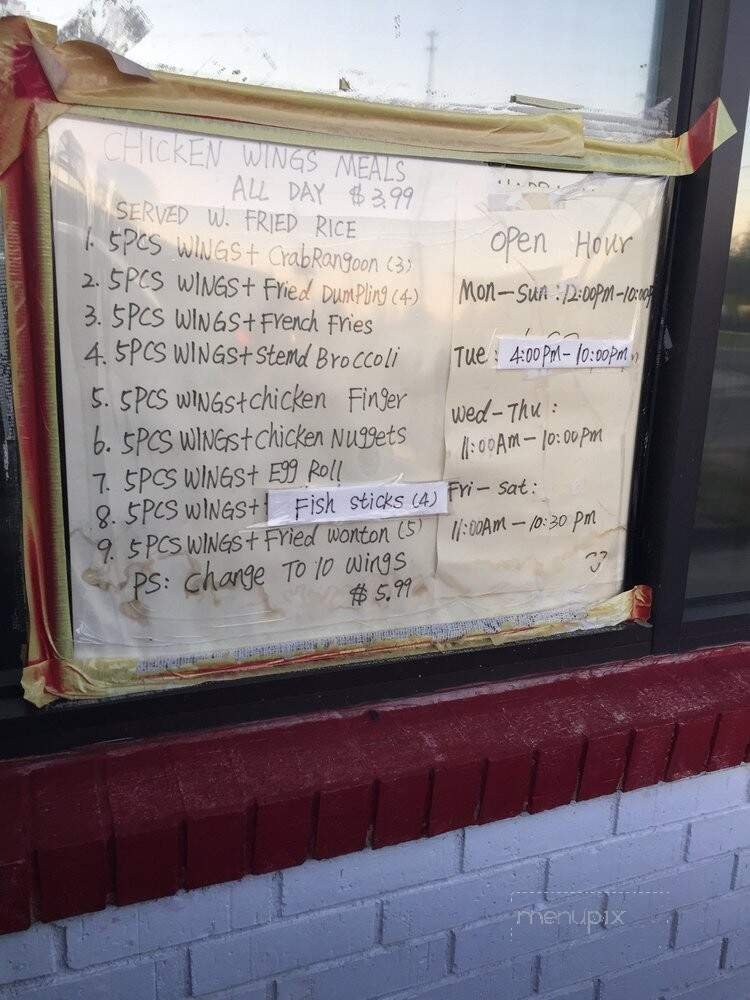 CHICKEN WINGS MEALS
ALL DAY $3.99
SERVED W. FRIED RICE
1. 5PCS WINGS+ CrabRangoon (3)
2. 5PCS WINGS+ Fried DumPling (4)
3. 5PCS WINGS+ French Fries
4. 5PCS WINGS+ Stemd Broccoli
5. 5PCS WINGS+chicken Finger
6. 5PCS WINGS+Chicken Nuggets
7. 5PCS WINGS+ Egg Roll
8. 5PCS WINGS+ Fish sticks (4)
9. 5PCS WINGS+ Fried wonton (5)
PS: Change To 10 wings
$ 5.99
open Hour
Mon-Sun: 12:00pm-10:00p
Tue: 4:00pm-10:00pm
Wed-Thu:
11:00Am-10:00pm
Fri-Sat:
11:00Am-10:30 pm
menupix